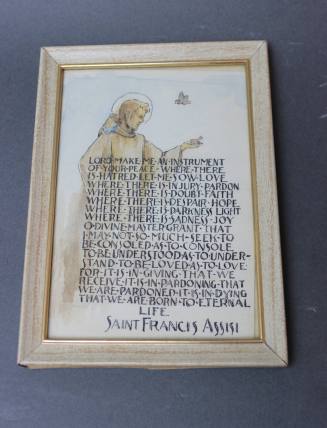 LORD·MAKE·ME·AN·INSTRUMENT
OF·YOUR·PEACE·WHERE·THERE
IS·HATRED·LET·ME·SOW·LOVE
WHERE·THERE·IS·INJURY·PARDON
WHERE·THERE·IS·DOUBT·FAITH
WHERE·THERE·IS·DESPAIR·HOPE
WHERE·THERE·IS·DARKNESS·LIGHT
WHERE·THERE·IS·SADNESS·JOY
O·DIVINE·MASTER·GRANT·THAT
I·MAY·NOT·SO·MUCH·SEEK·TO
BE·CONSOLED·AS·TO·CONSOLE
TO·BE·UNDERSTOOD·AS·TO·UNDER-
STAND·TO·BE·LOVED·AS·TO·LOVE
FOR·IT·IS·IN·GIVING·THAT·WE
RECEIVE·IT·IS·IN·PARDONING·THAT
WE·ARE·PARDONED·IT·IS·IN·DYING
THAT·WE·ARE·BORN·TO·ETERNAL
LIFE
SAINT FRANCIS ASSISI